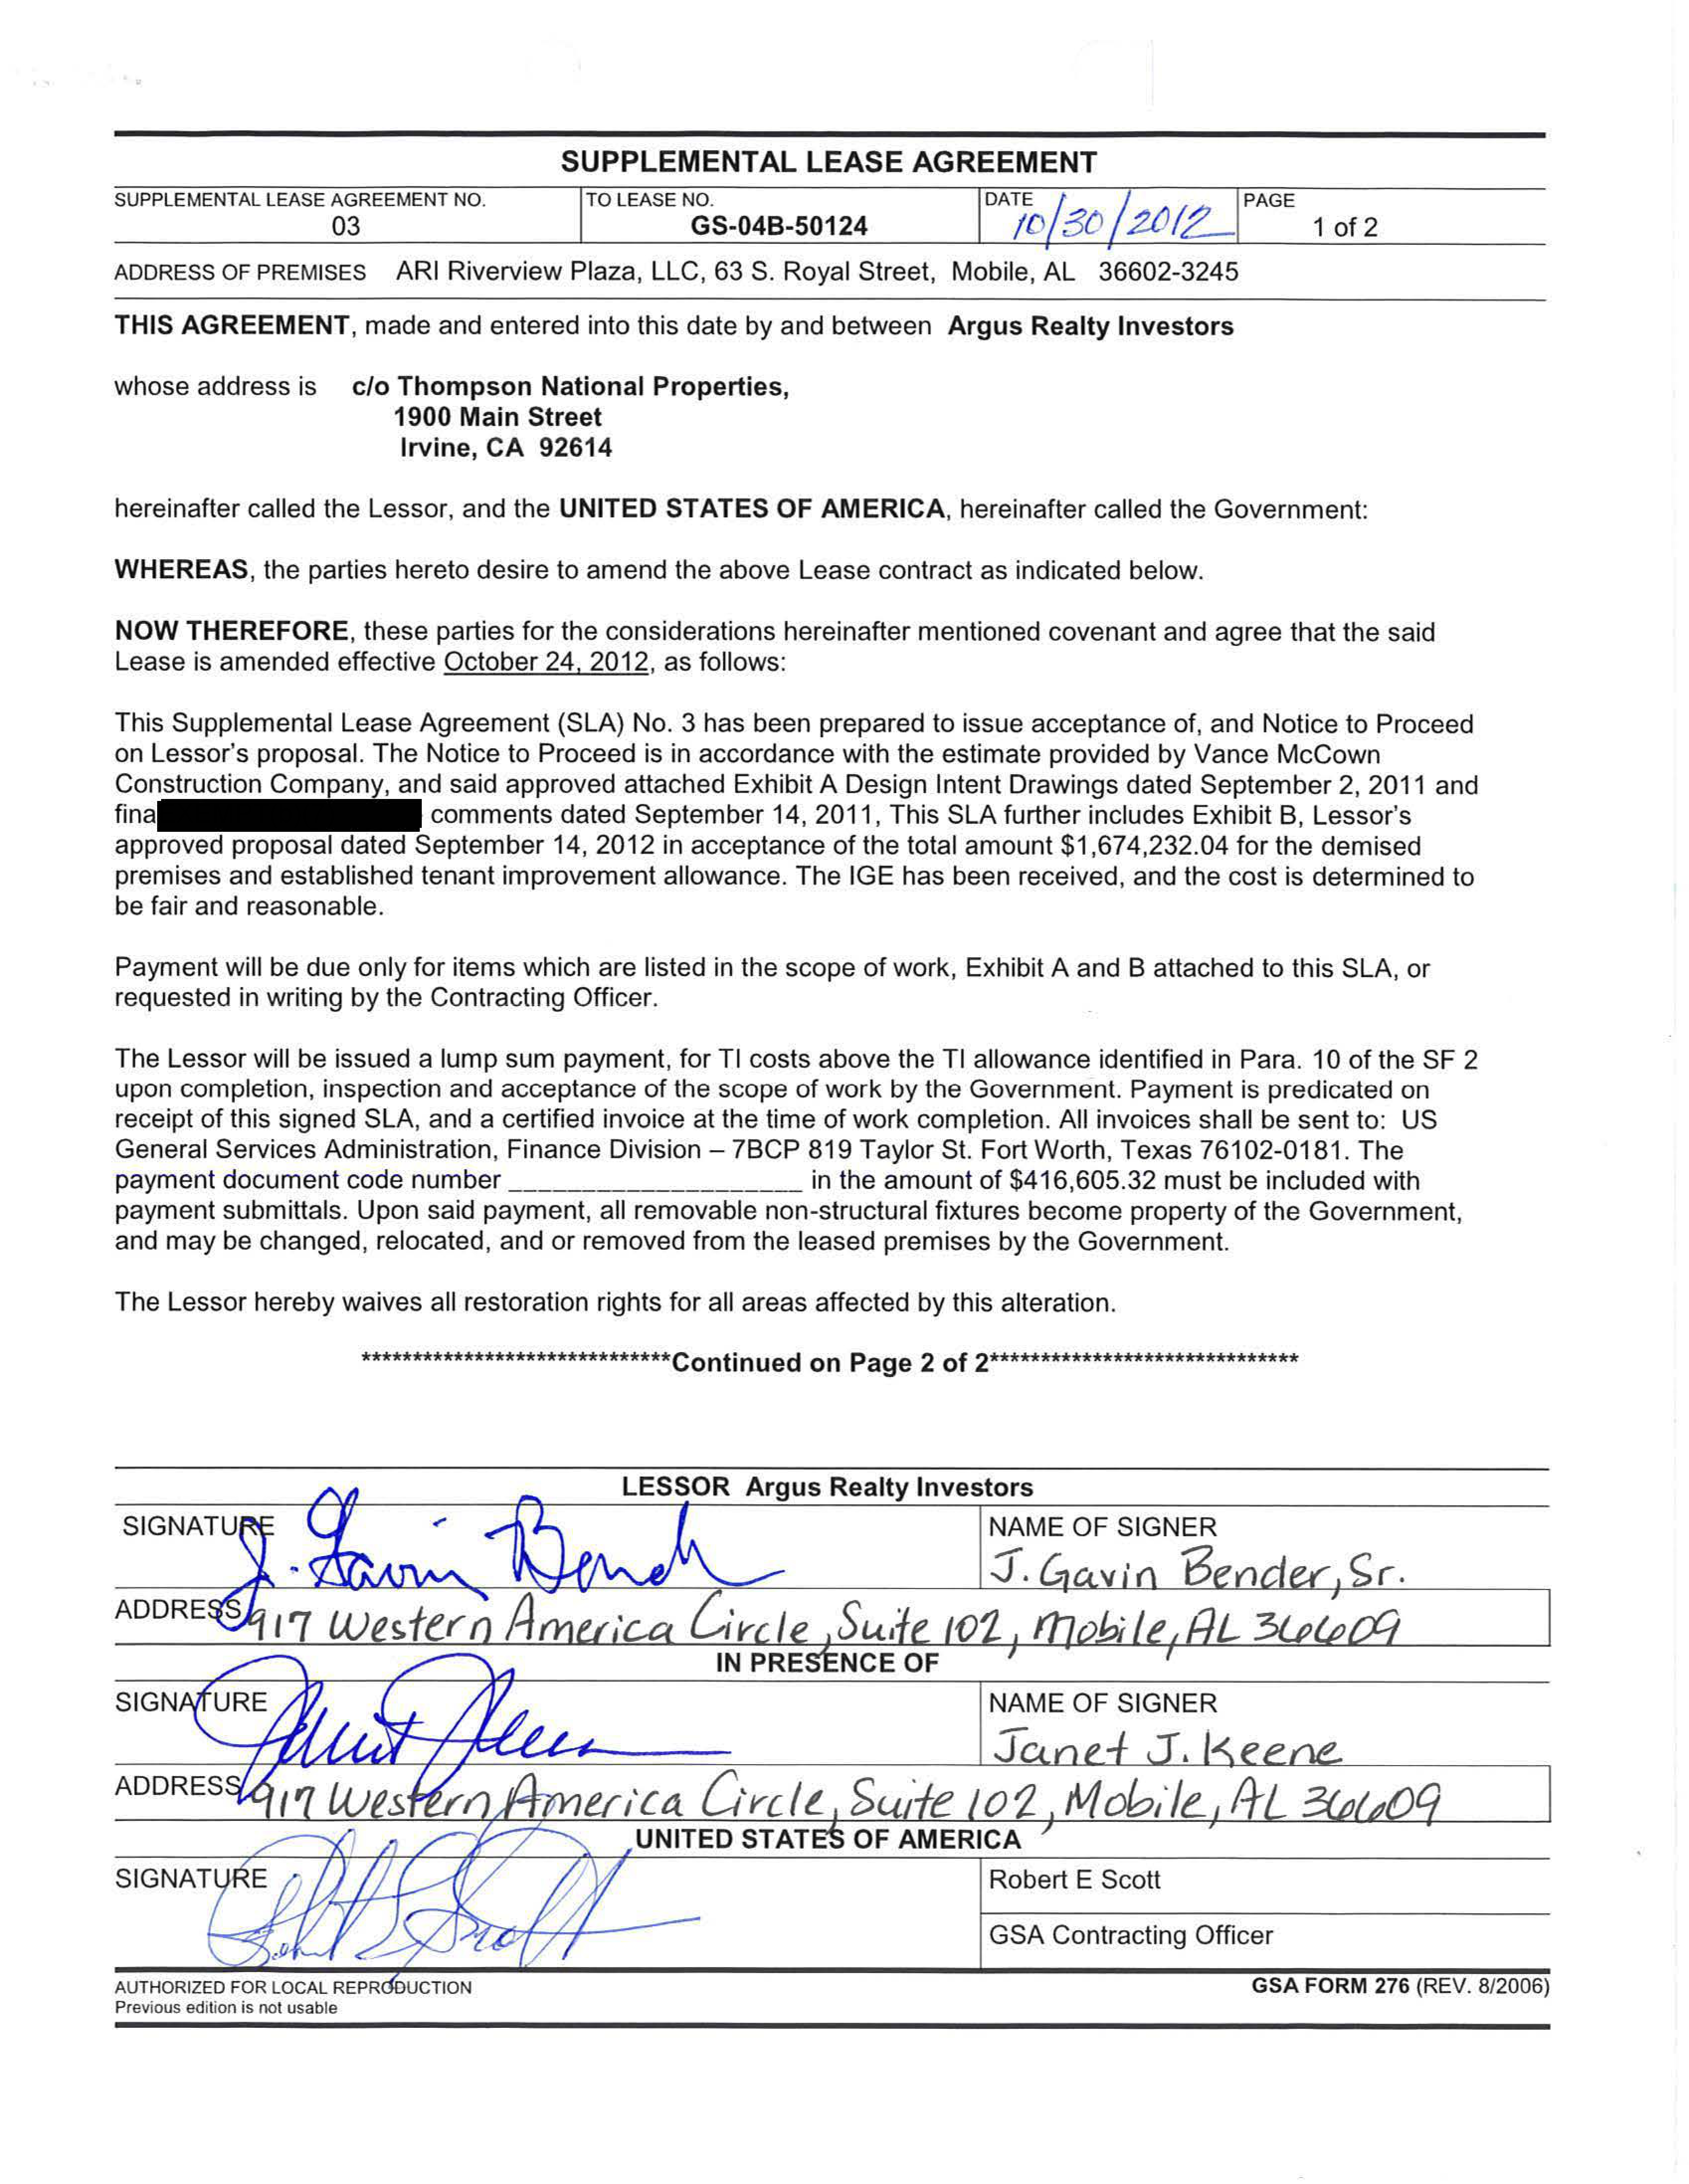 SUPPLEMENTAL LEASE AGREEMENT
SUPPLEMENTAL LEASE AGREEMENT NO. TO LEASE NO. DATE PAGE
03 GS-04B-50124 10/30/2012 1 of 2
ADDRESS OF PREMISES ARI Riverview Plaza, LLC, 63 S. Royal Street, Mobile, AL 36602-3245
THIS AGREEMENT, made and entered into this date by and between Argus Realty Investors
whose address is c/o Thompson National Properties,
1900 Main Street
Irvine, CA 92614
hereinafter called the Lessor, and the UNITED STATES OF AMERICA, hereinafter called the Government:
WHEREAS, the parties hereto desire to amend the above Lease contract as indicated below.
NOW THEREFORE, these parties for the considerations hereinafter mentioned covenant and agree that the said
Lease is amended effective October 24, 2012, as follows:
This Supplemental Lease Agreement (SLA) No. 3 has been prepared to issue acceptance of, and Notice to Proceed
on Lessor's proposal. The Notice to Proceed is in accordance with the estimate provided by Vance McCown
Construction Company, and said approved attached Exhibit A Design Intent Drawings dated September 2, 2011 and
fina comments dated September 14, 2011, This SLA further includes Exhibit B, Lessor's
approved proposal dated September 14, 2012 in acceptance of the total amount $1,674,232.04 for the demised
premises and established tenant improvement allowance. The IGE has been received, and the cost is determined to
be fair and reasonable.
Payment will be due only for items which are listed in the scope of work, Exhibit A and B attached to this SLA, or
requested in writing by the Contracting Officer.
The Lessor will be issued a lump sum payment, for TI costs above the TI allowance identified in Para. 10 of the SF 2
upon completion, inspection and acceptance of the scope of work by the Government. Payment is predicated on
receipt of this signed SLA, and a certified invoice at the time of work completion. All invoices shall be sent to: US
General Services Administration, Finance Division – 7BCP 819 Taylor St. Fort Worth, Texas 76102-0181. The
payment document code number ____________________ in the amount of $416,605.32 must be included with
payment submittals. Upon said payment, all removable non-structural fixtures become property of the Government,
and may be changed, relocated, and or removed from the leased premises by the Government.
The Lessor hereby waives all restoration rights for all areas affected by this alteration.
******************************Continued on Page 2 of 2******************************
LESSOR Argus Realty Investors
SIGNATURE J. Gavin Bender NAME OF SIGNER
J. Gavin Bender, Sr.
ADDRESS 917 Western America Circle, Suite 102, Mobile, AL 36609
IN PRESENCE OF
SIGNATURE Janet J Keene NAME OF SIGNER
Janet J. Keene
ADDRESS 917 Western America Circle, Suite 102, Mobile, AL 36609
UNITED STATES OF AMERICA
SIGNATURE Robert E Scott Robert E Scott
GSA Contracting Officer
AUTHORIZED FOR LOCAL REPRODUCTION GSA FORM 276 (REV. 8/2006)
Previous edition is not usable